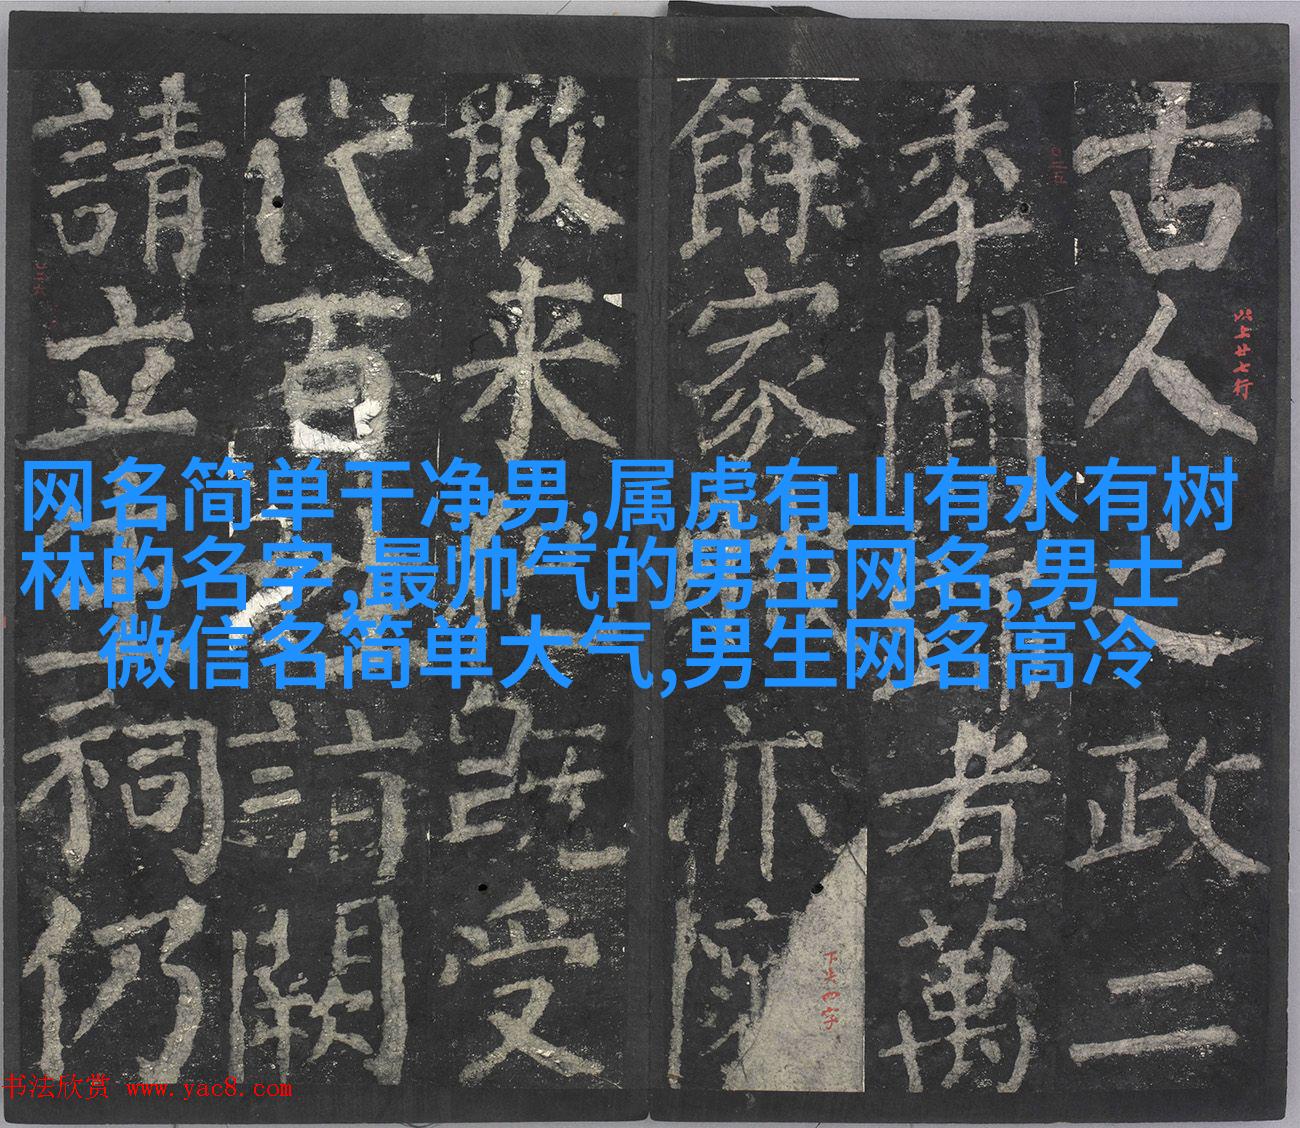 网名简单干净男,属虎有山有水有树
林的名字,最帅气的男生网名,男士
微信名简单大气,男生网名高冷
古人之政二
秊聞者萬
餘家亦
敢来既受
代百詣闕
請立祠仍
以上廿七行
下失四字
书法欣赏 www.yac8.com